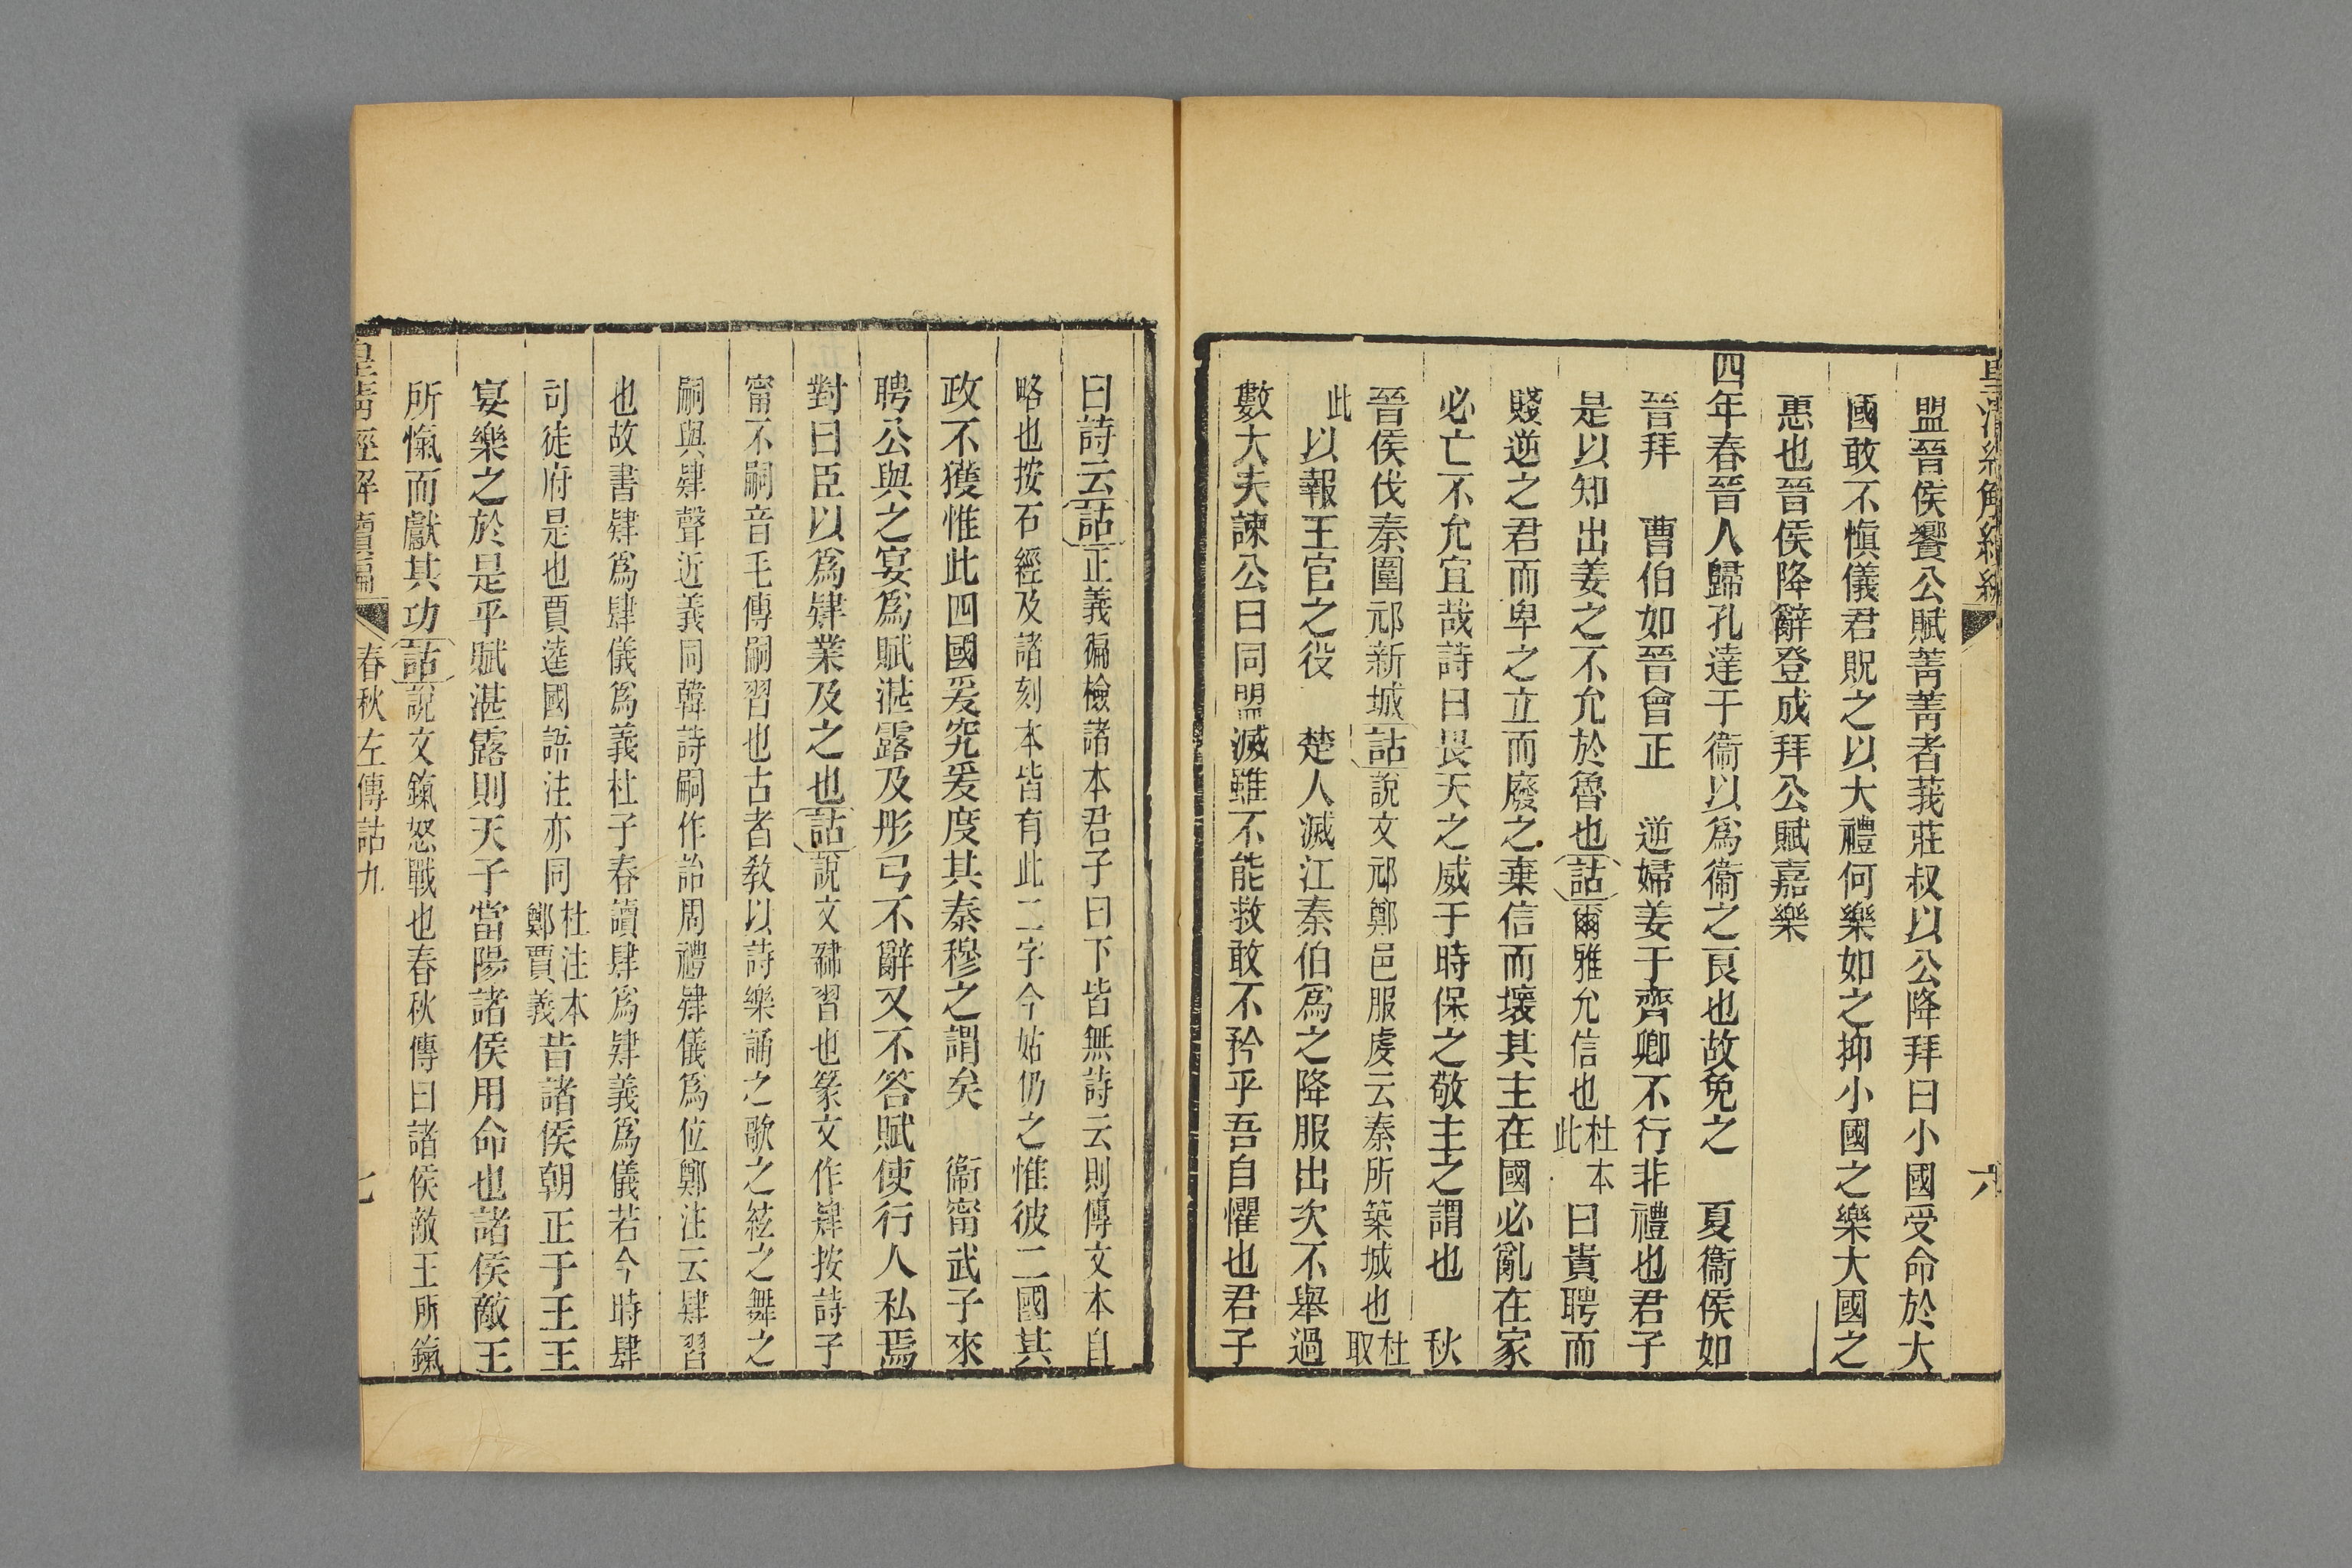 皇清經解續編
六
盟晉侯饗公賦菁菁者莪莊叔以公降拜曰小國受命於大
國敢不愼儀君貺之以大禮何樂如之抑小國之樂大國之
惠也晉侯降辭登成拜公賦嘉樂
四年春晉人歸孔達于衞以爲衞之良也故免之　夏衞侯如
晉拜　曹伯如晉會正　逆婦姜于齊卿不行非禮也君子
是以知出姜之不允於魯也詁爾雅允信也杜本此曰貴聘而
賤逆之君而卑之立而廢之棄信而壞其主在國必亂在家
必亡不允宜哉詩曰畏天之威于時保之敬主之謂也　秋
晉侯伐秦圍邧新城詁說文邧鄭邑服虔云秦所築城也杜取
此以報王官之役　楚人滅江秦伯爲之降服出次不舉過
數大夫諫公曰同盟滅雖不能救敢不矜乎吾自懼也君子
曰詩云詁正義徧檢諸本君子曰下皆無詩云則傳文本自
略也按石經及諸刻本皆有此二字今姑仍之惟彼二國其
政不獲惟此四國爰究爰度其秦穆之謂矣　衞甯武子來
聘公與之宴爲賦湛露及彤弓不辭又不答賦使行人私焉
對曰臣以爲肄業及之也詁說文肄習也篆文作肄按詩子
甯不嗣音毛傳嗣習也古者敎以詩樂誦之歌之絃之舞之
嗣與肄聲近義同韓詩嗣作詒周禮肄儀爲位鄭注云肄習
也故書肄爲肆儀爲義杜子春讀肆爲肄義爲儀若今時肆
司徒府是也賈逵國語注亦同杜注本鄭賈義昔諸侯朝正于王王
宴樂之於是乎賦湛露則天子當陽諸侯用命也諸侯敵王
所愾而獻其功詁說文鎎怒戰也春秋傳曰諸侯敵王所鎎
皇清經解續編
春秋左傳詁九
七